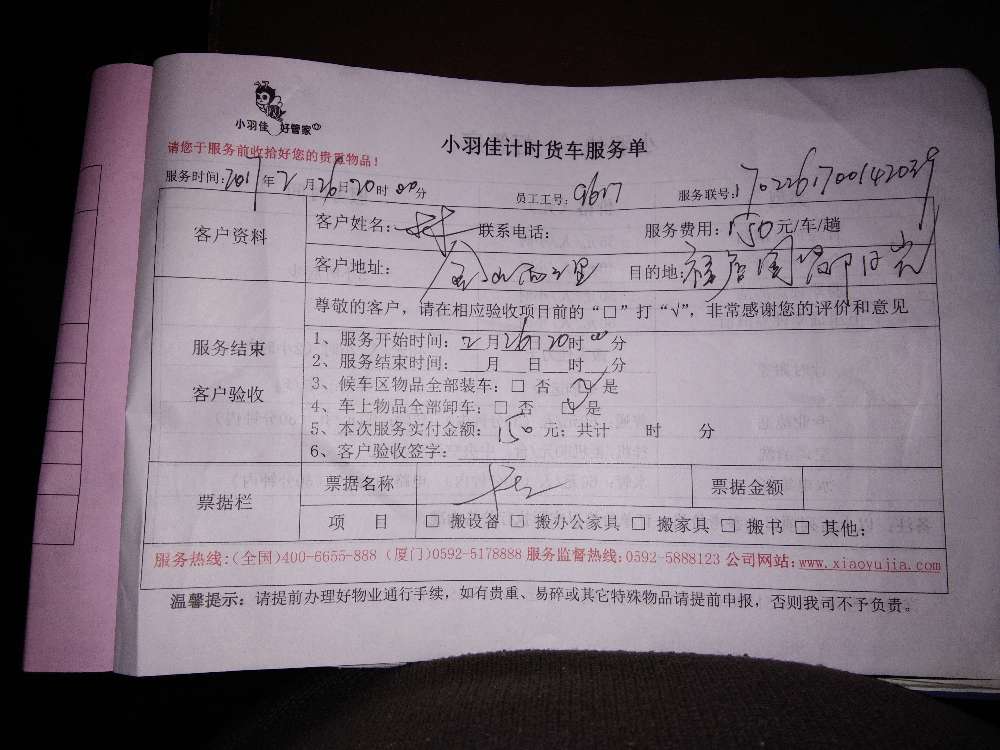 小羽佳 好管家
小羽佳计时货车服务单
请您于服务前收拾好您的贵重物品！
服务时间：2017年2月26日20时00分 员工工号：9617 服务联号：
客户资料 客户姓名：林 联系电话： 服务费用：150元/车/趟
客户地址： 目的地：
尊敬的客户，请在相应验收项目前的“□”打“√”，非常感谢您的评价和意见
服务结束
客户验收
1、服务开始时间：2月26日20时00分
2、服务结束时间：___月___日___时___分
3、候车区物品全部装车：□ 否 ☑是
4、车上物品全部卸车：□ 否 ☑是
5、本次服务实付金额：150元；共计 时 分
6、客户验收签字：
票据栏 票据名称 票据金额
项 目 □ 搬设备 □ 搬办公家具 □ 搬家具 □ 搬书 □ 其他：
服务热线：(全国)400-6655-888 (厦门)0592-5178888 服务监督热线：0592-5888123 公司网站：www.xiaoyujia.com
温馨提示：请提前办理好物业通行手续，如有贵重、易碎或其它特殊物品请提前申报，否则我司不予负责。